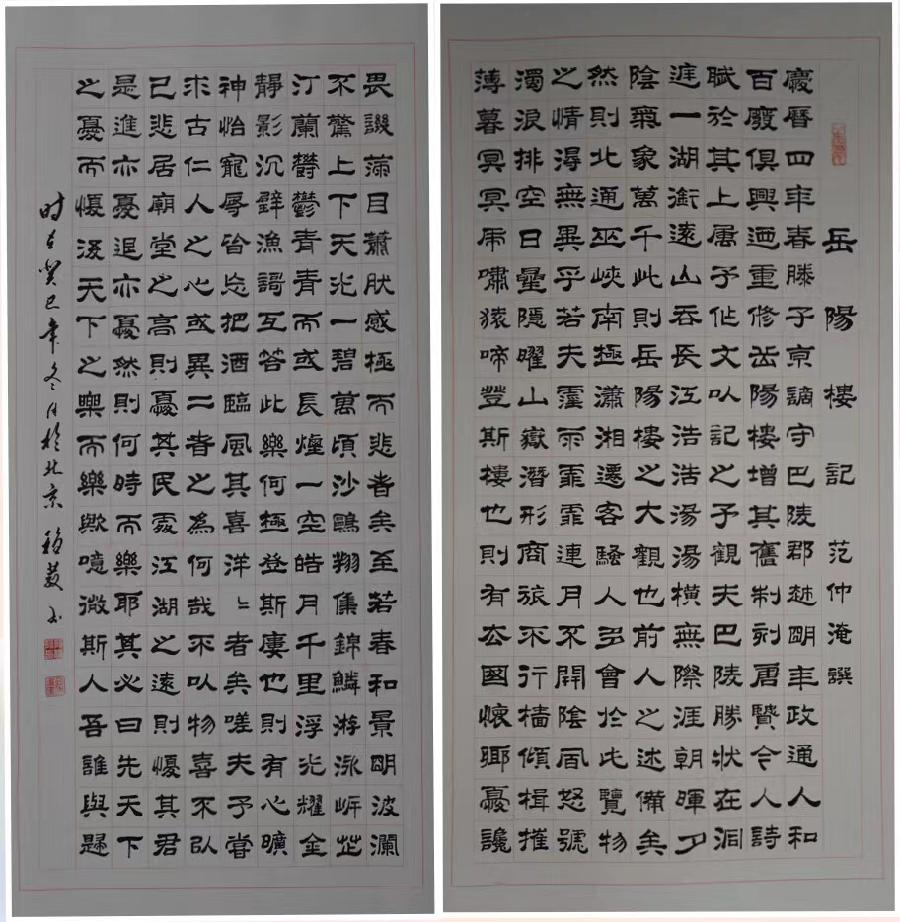 岳陽樓記 范仲淹撰
慶曆四年春滕子京謫守巴陵郡越明年政通人和
百廢俱興迺重修岳陽樓增其舊制刻唐賢今人詩
賦於其上属予作文以記之予觀夫巴陵勝狀在洞
庭一湖銜遠山吞長江浩浩湯湯橫無際涯朝暉夕
陰氣象萬千此則岳陽樓之大觀也前人之述備矣
然則北通巫峽南極瀟湘遷客騷人多會於此覽物
之情得無異乎若夫霪雨霏霏連月不開陰風怒號
濁浪排空日星隱曜山嶽潛形商旅不行檣傾楫摧
薄暮冥冥虎嘯猿啼登斯樓也則有去國懷鄉憂讒
畏譏滿目蕭然感極而悲者矣至若春和景明波瀾
不驚上下天光一碧萬頃沙鷗翔集錦鱗游泳岸芷
汀蘭鬱鬱青青而或長煙一空皓月千里浮光耀金
靜影沉璧漁謌互答此樂何極登斯樓也則有心曠
神怡寵辱皆忘把酒臨風其喜洋〻者矣嗟夫予嘗
求古仁人之心或異二者之為何哉不以物喜不以
己悲居廟堂之高則憂其民處江湖之遠則懮其君
是進亦憂退亦憂然則何時而樂耶其必曰先天下
之憂而懮後天下之樂而樂歟噫微斯人吾誰與歸
时在癸巳年冬月於北京